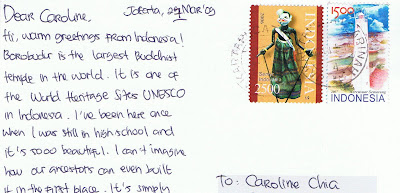 Dear Caroline,
Hi, warm greetings from Indonesia!
Borobudur is the largest Buddhist
temple in the world. It is one of
the World Heritage Sites UNESCO
in Indonesia. I've been here once
when I was still in high school and
it's sooo beautiful. I can't imagine
how our ancestors can even built
it in the first place. It's simply
2500
1500
INDONESIA
TO: Caroline Chia